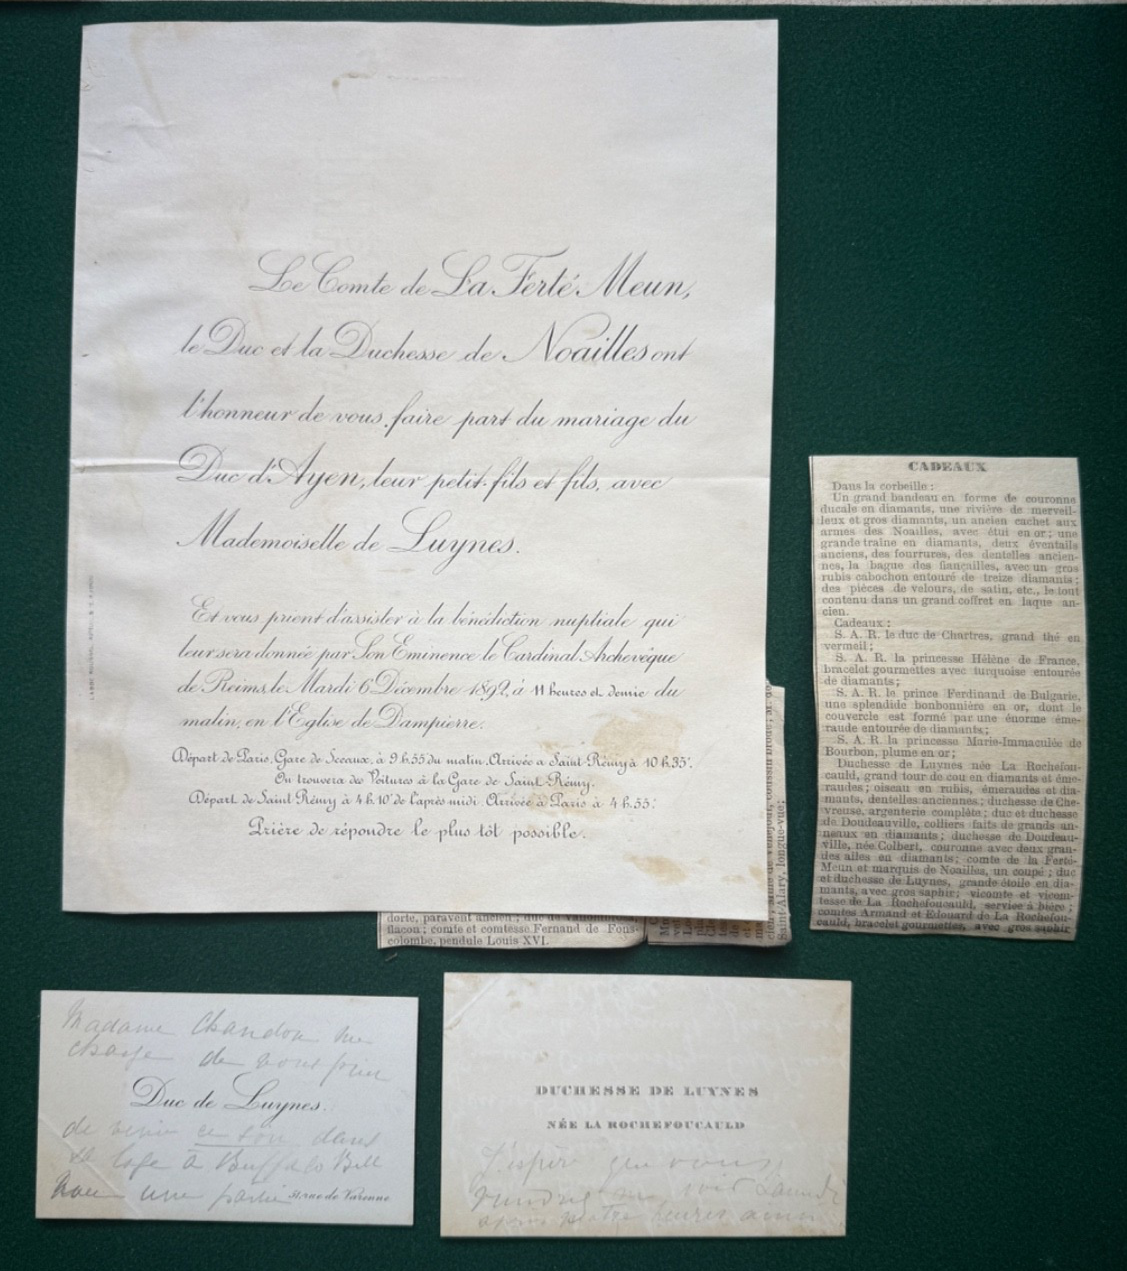 Le Comte de La Ferté-Meun,
le Duc et la Duchesse de Noailles ont
l'honneur de vous faire part du mariage du
Duc d'Ayen, leur petit-fils et fils, avec
Mademoiselle de Luynes.
Et vous prient d'assister à la bénédiction nuptiale qui
leur sera donnée par Son Eminence le Cardinal Archevêque
de Reims, le Mardi 6 Décembre 1892, à 11 heures et demie du
matin, en l'Eglise de Dampierre.
Départ de Paris, Gare de Sceaux, à 9 h. 55 du matin. Arrivée à Saint-Rémy à 10 h. 35'.
On trouvera des Voitures à la Gare de Saint-Rémy.
Départ de Saint Rémy à 4 h. 10' de l'après-midi. Arrivée à Paris à 4 h. 55'.
Prière de répondre le plus tôt possible.
CADEAUX
Dans la corbeille :
Un grand bandeau en forme de couronne
ducale en diamants, une rivière de merveil-
leux et gros diamants, un ancien cachet aux
armes des Noailles, avec étui en or; une
grande traîne en diamants, deux éventails
anciens, des fourrures, des dentelles ancien-
nes, la bague des fiançailles, avec un gros
rubis cabochon entouré de treize diamants;
des pièces de velours, de satin, etc., le tout
contenu dans un grand coffret en laque an-
cien.
Cadeaux :
S. A. R. le duc de Chartres, grand thé en
vermeil;
S. A. R. la princesse Hélène de France,
bracelet gourmettes avec turquoise entourée
de diamants;
S. A. R. le prince Ferdinand de Bulgarie,
une splendide bonbonnière en or, dont le
couvercle est formé par une énorme éme-
raude entourée de diamants;
S. A. R. la princesse Marie-Immaculée de
Bourbon, plume en or;
Duchesse de Luynes née La Rochefou-
cauld, grand tour de cou en diamants et éme-
raudes; oiseau en rubis, émeraudes et dia-
mants, dentelles anciennes; duchesse de Che-
vreuse, argenterie complète; duc et duchesse
de Doudeauville, colliers faits de grands an-
neaux en diamants; duchesse de Doudeau-
ville, née Colbert, couronne avec deux gran-
des ailes en diamants; comte de la Ferté-
Meun et marquis de Noailles, un coupé; duc
et duchesse de Luynes, grande étoile en dia-
mants, avec gros saphir; vicomte et vicom-
tesse de La Rochefoucauld, service à bière;
comtes Armand et Edouard de La Rochefou-
cauld, bracelet gourmettes, avec gros saphir
dorte, paravent ancien; duc de
flacon; comte et comtesse Fernand de Fons-
colombe, pendule Louis XVI.
Saint-Alary, longue-vue;
Madame Chandon me
charge de vous prier
Duc de Luynes.
de venir ce soir dans
sa loge à Buffalo Bill
avec une partie
51 rue de Varenne
DUCHESSE DE LUYNES
NÉE LA ROCHEFOUCAULD
J'espère que vous
viendrez me voir Lundi
après quatre heures